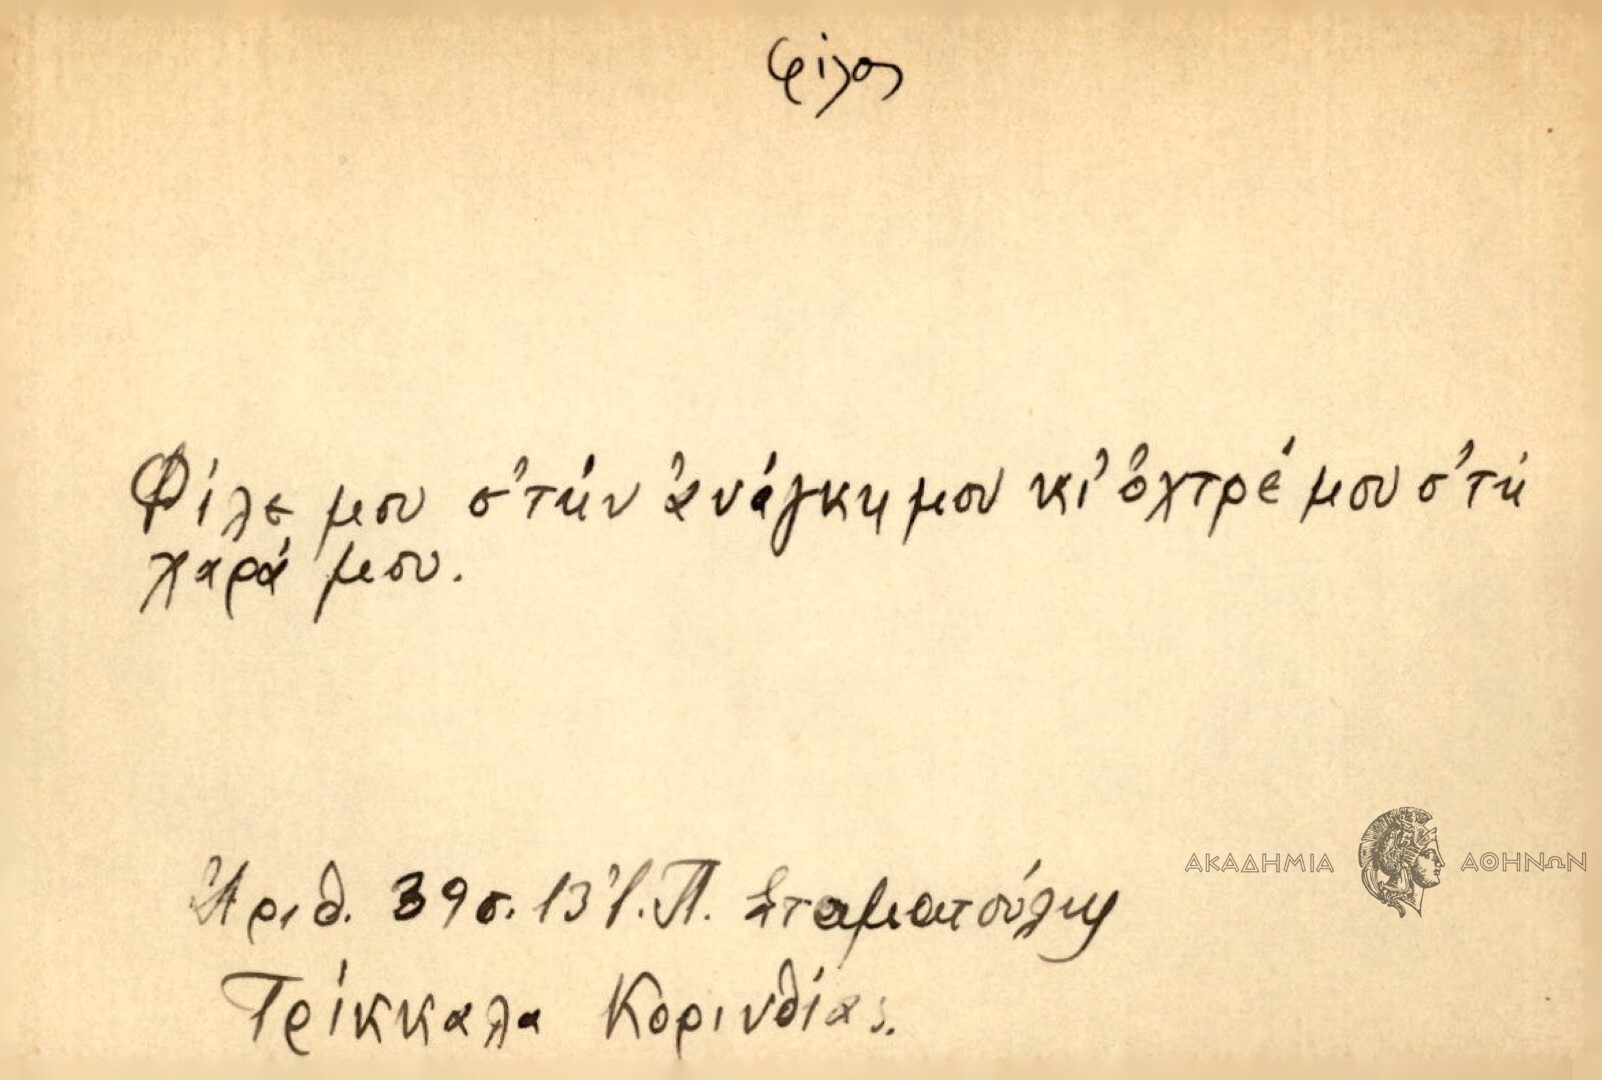 φίλος
Φίλε μου σ'τήν ἀνάγκη μου κι' ὀχτρέ μου σ'τή
χαρά μου.
ΑΚΑΔΗΜΙΑ ΑΘΗΝΩΝ
Ἀριθ. 39 σ. 13 Ἰ. Π. Σταματούλης
Τρίκκαλα Κορινθίας.